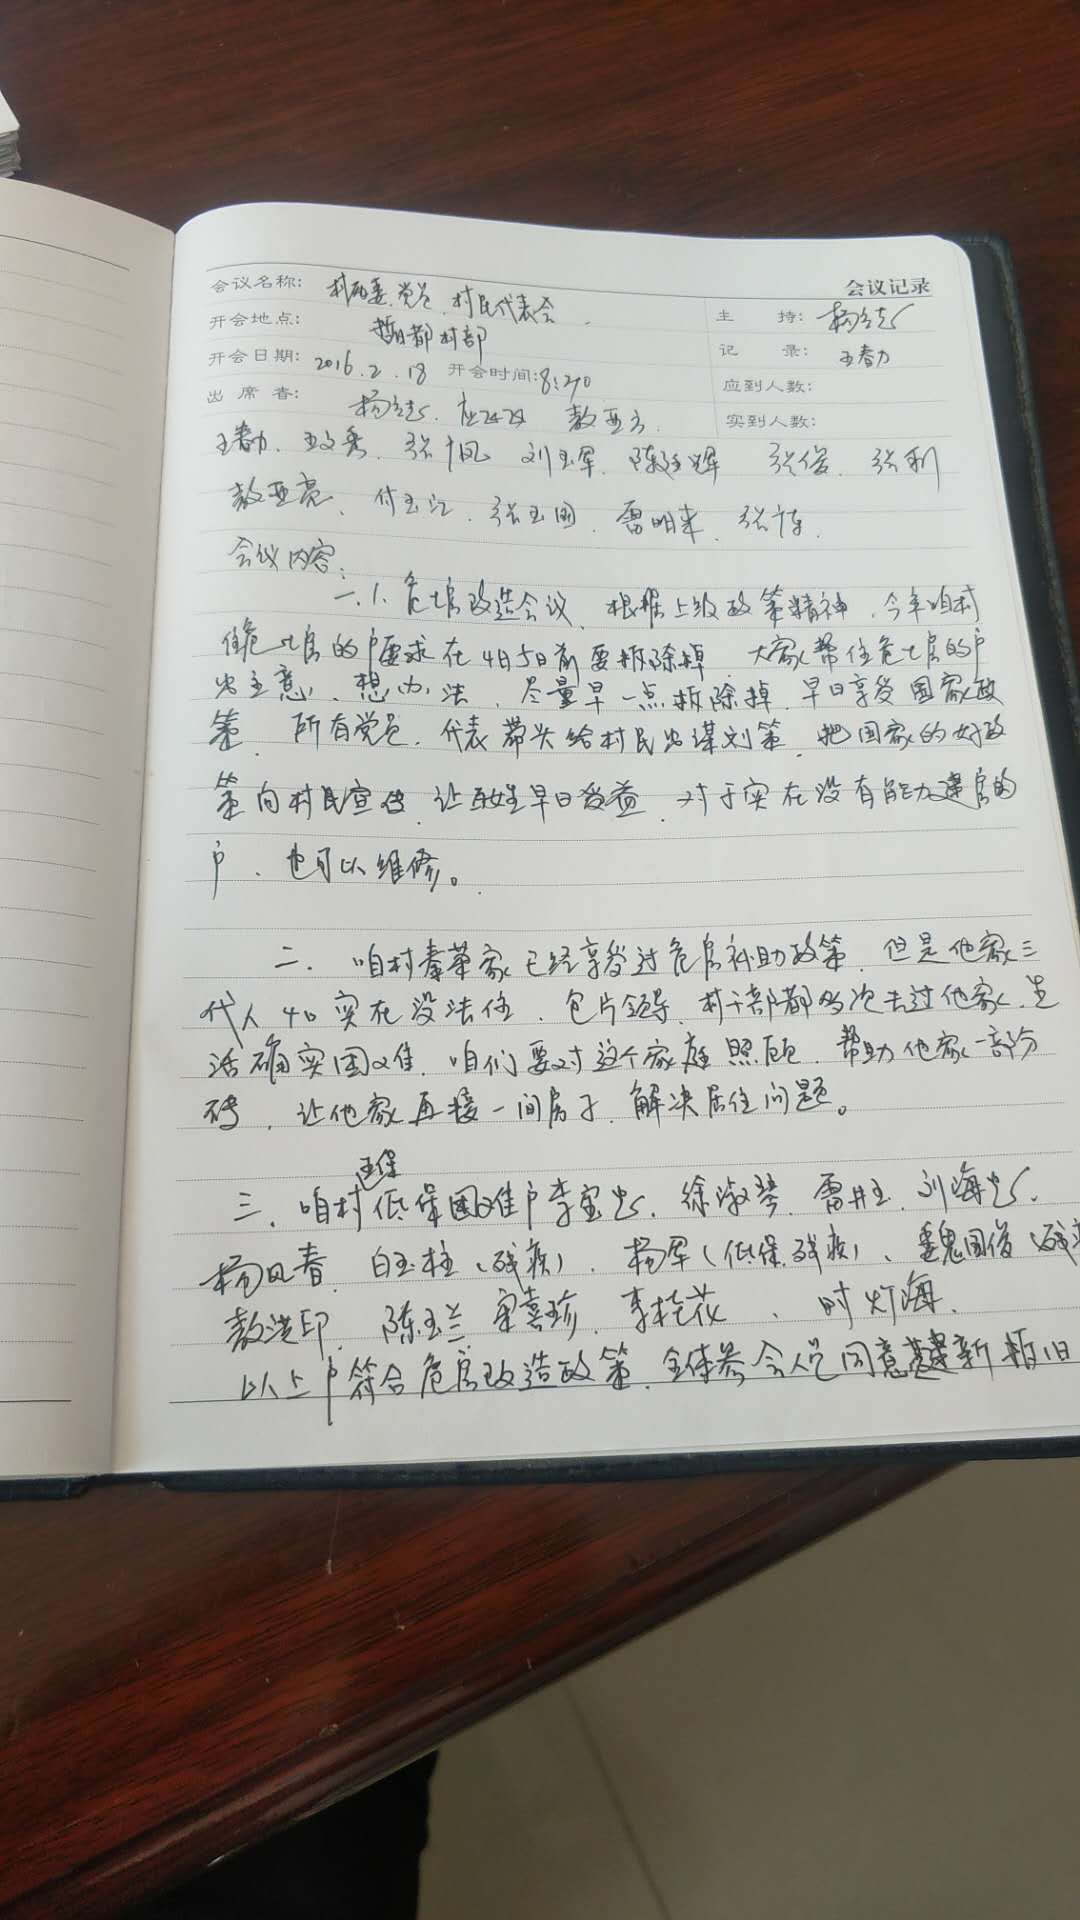 会议记录
会议名称: 村两委.党员.村民代表会
主 持:
开会地点: 哲日都村部
记 录: 王春力
开会日期: 2016.2.18 开会时间:8:20
应到人数:
出 席 者: 敖亚
实到人数:
王春力、张 凤 刘玉军. 陈廷辉 张俊、张利
敖亚亮、付玉江、张玉国、雷明来、张
会议内容:
一.1.危土房改造会议、根据上级政策精神,今年咱村
住危土房的户要求在4月5日前要拆除掉、大家帮住危土房的户
出主意、想办法、尽量早一点拆除掉,早日享受国家政
策、所有党员、代表带头给村民出谋划策、把国家的好政
策向村民宣传、让百姓早日受益、对于实在没有能力建房的
户、也可以维修。
二、咱村秦荣家已经享受过危房补助政策、但是他家三
代人 实在没法住、包片领导、村干部都多次去过他家、生
活确实困难、咱们要对这个家庭照顾、帮助他家一部分
砖、让他家再接一间房子、解决居住问题。
五保
三、咱村低保困难户李宝 、徐淑琴、雷井玉、刘海 、
杨凤春、白玉柱(残疾)、杨军(低保、残疾)、魏国俊(残
敖洪印、陈玉兰、宋喜珍、李桂花、时灯海、
以上户符合危房改造政策、全体参会人员同意建新拆旧